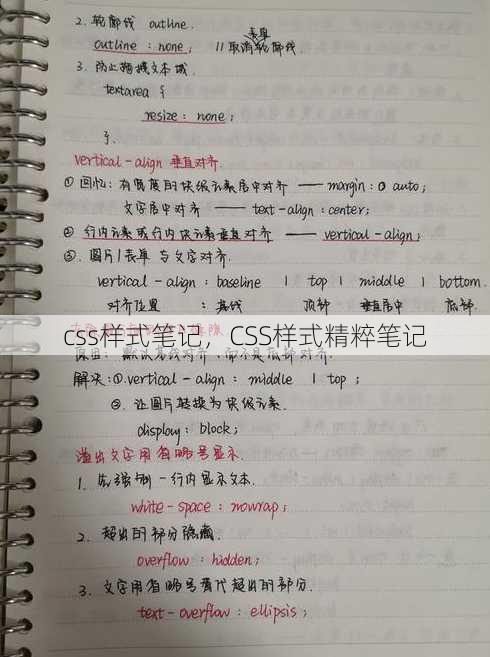 2. 轮廓线 outline.
outline : none; //取消表单轮廓线.
3. 防止拖拽文本域.
textarea {
resize : none;
}.
vertical-align 垂直对齐.
① 回忆: 有宽度的块级元素居中对齐 —— margin: 0 auto;
文字居中对齐 —— text-align :center;
② 行内元素或行内块元素垂直对齐 —— vertical-align;
③. 图片/表单 与文字对齐.
vertical-align : baseline | top | middle | bottom.
对齐位置 : 基线 顶部 垂直居中 底部.
css样式笔记，CSS样式精粹笔记
原因: 默认基线对齐, 而不是底部对齐.
解决:①.vertical-align : middle | top ;
②. 让图片转换为块级元素.
display: block;
溢出文字用省略号显示.
1. 先强制一行内显示文本.
white-space : nowrap;
2. 超出的部分隐藏.
overflow : hidden;
3. 文字用省略号替代超出的部分.
text-overflow : ellipsis;